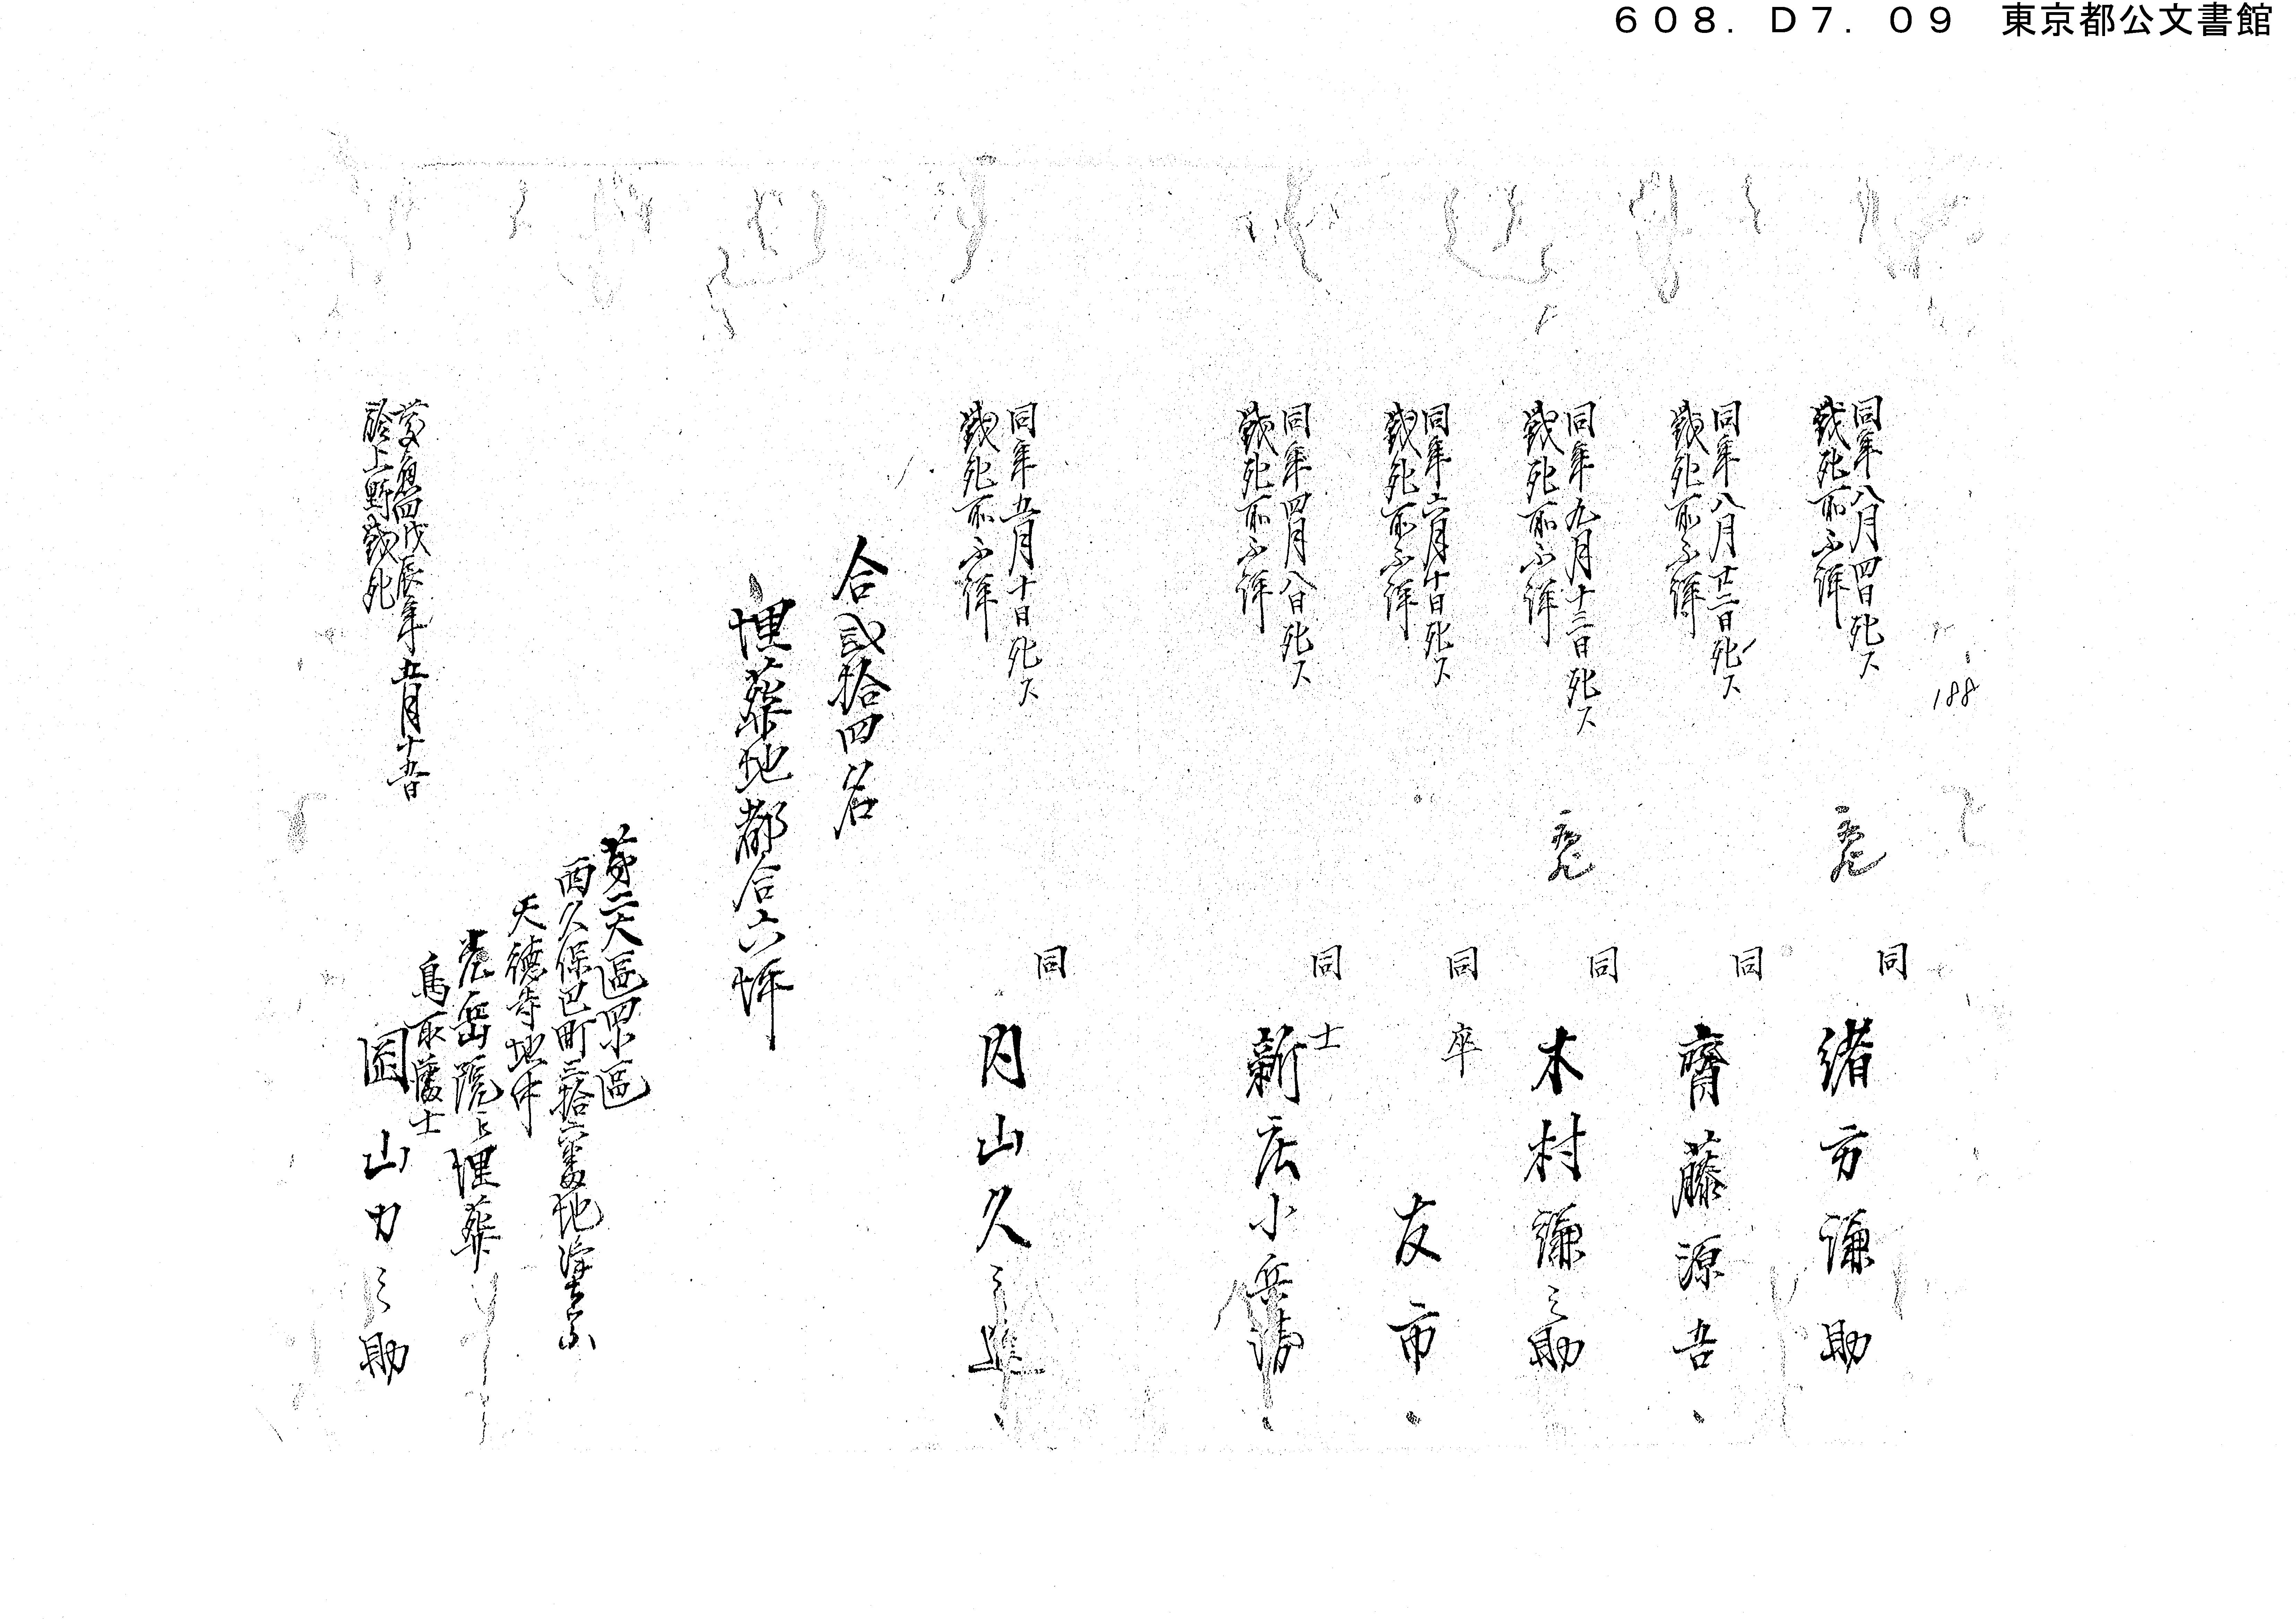 608. D7. 09 東京都公文書館
188
同年八月四日死ス
戦死所不詳
同
緒方謙助
同年八月廿三日死ス
戦死所不詳
同
齊藤源吉
同年九月十三日死ス
戦死所不詳
同
木村謙之助
同年六月十日死ス
戦死所不詳
同
卒
友市
同年四月八日死ス
戦死所不詳
同
士
新庄小兵衛
同年五月十日死ス
戦死所不詳
同
内山久之進
合弐拾四名
埋葬地都合六ケ所
第二大區四小區
西久保巴町三拾六番地浄土宗
天徳寺地中
岳院ニ埋葬
鳥取藩士
慶應四戊辰年五月十五日
於上野戦死
岡山力之助